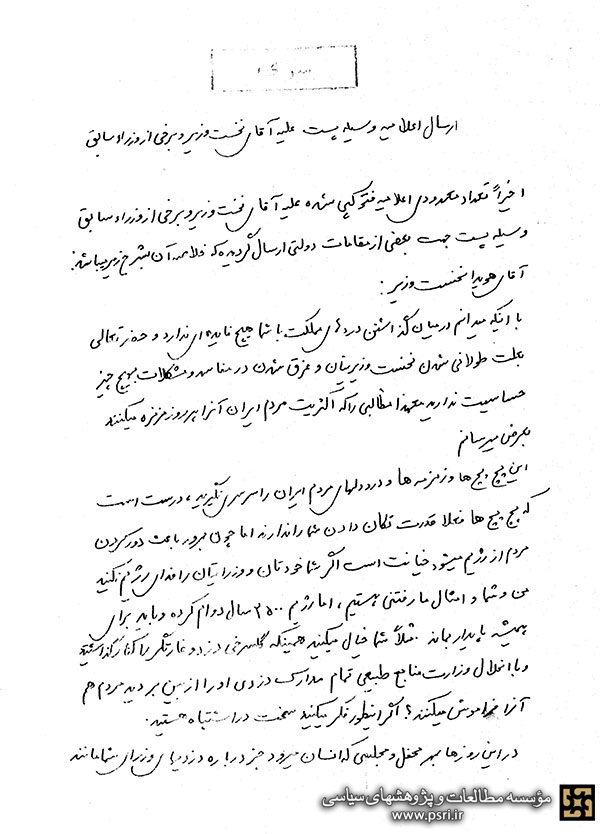 سری
ارسال اعلامیه وسیله پست علیه آقای نخست وزیر و برخی از وزراء سابق
اخیراً تعداد معدودی اعلامیه فتوکپی شده علیه آقای نخست وزیر و برخی از وزراء سابق
وسیله پست جهت بعضی از مقامات دولتی ارسال گردیده که خلاصه آن بشرح زیر میباشد:
آقای هویدا نخست وزیر:
با آنکه میدانم در میان گذاشتن دردهای مملکت با شما هیچ فایده ای ندارد و حضرتعالی
بعلت طولانی شدن نخست وزیریتان و غرق شدن در مفاسد و مشکلات بهیچ چیز
حساسیت ندارید معهذا مطالبی را که اکثریت مردم ایران آنرا هر روز مزمزه میکنند
بعرض میرسانم
این پچ پچ ها و زمزمه ها و درددلهای مردم ایران را سرسری نگیرید، درست است
که پچ پچ ها فعلا قدرت تکان دادن شما را ندارند اما چون بمرور باعث دور کردن
مردم از رژیم میشود خیانت است اگر شما خودتان و وزرایتان را فدای رژیم نکنید
من و شما و امثال ما رفتنی هستیم، اما رژیم ۲۵۰۰ سال دوام کرده و باید برای
همیشه پایدار بماند. مثلاً شما خیال میکنید همینکه گلسرخی دزد و غارتگر را کنار گذاشتید
و با انحلال وزارت منابع طبیعی تمام مدارک دزدی او را از بین بردید مردم هم
آنرا فراموش میکنند؟ اگر اینطور فکر میکنید سخت در اشتباه هستید.
در این روزها بهر محفل و مجلسی که انسان میرود جز درباره دزدیهای وزرای شما مانند
مؤسسه مطالعات و پژوهشهای سیاسی
www.psri.ir